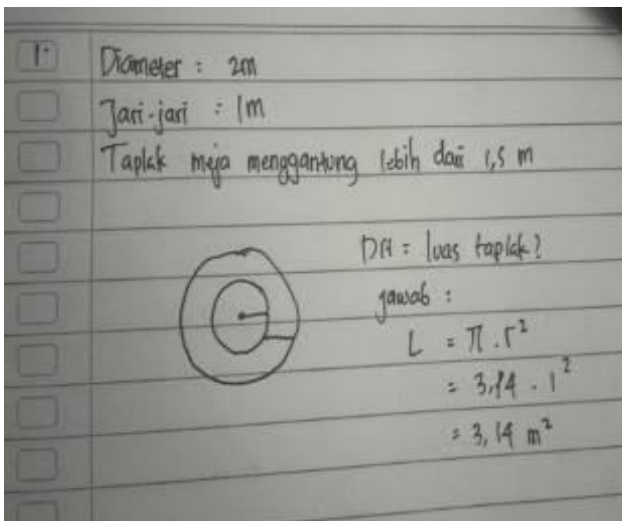 1.
Diameter : 2m
Jari-jari : 1m
Taplak meja menggantung lebih dari 1,5 m
Dit : luas taplak?
jawab :
L = π . r²
= 3,14 . 1²
= 3,14 m²